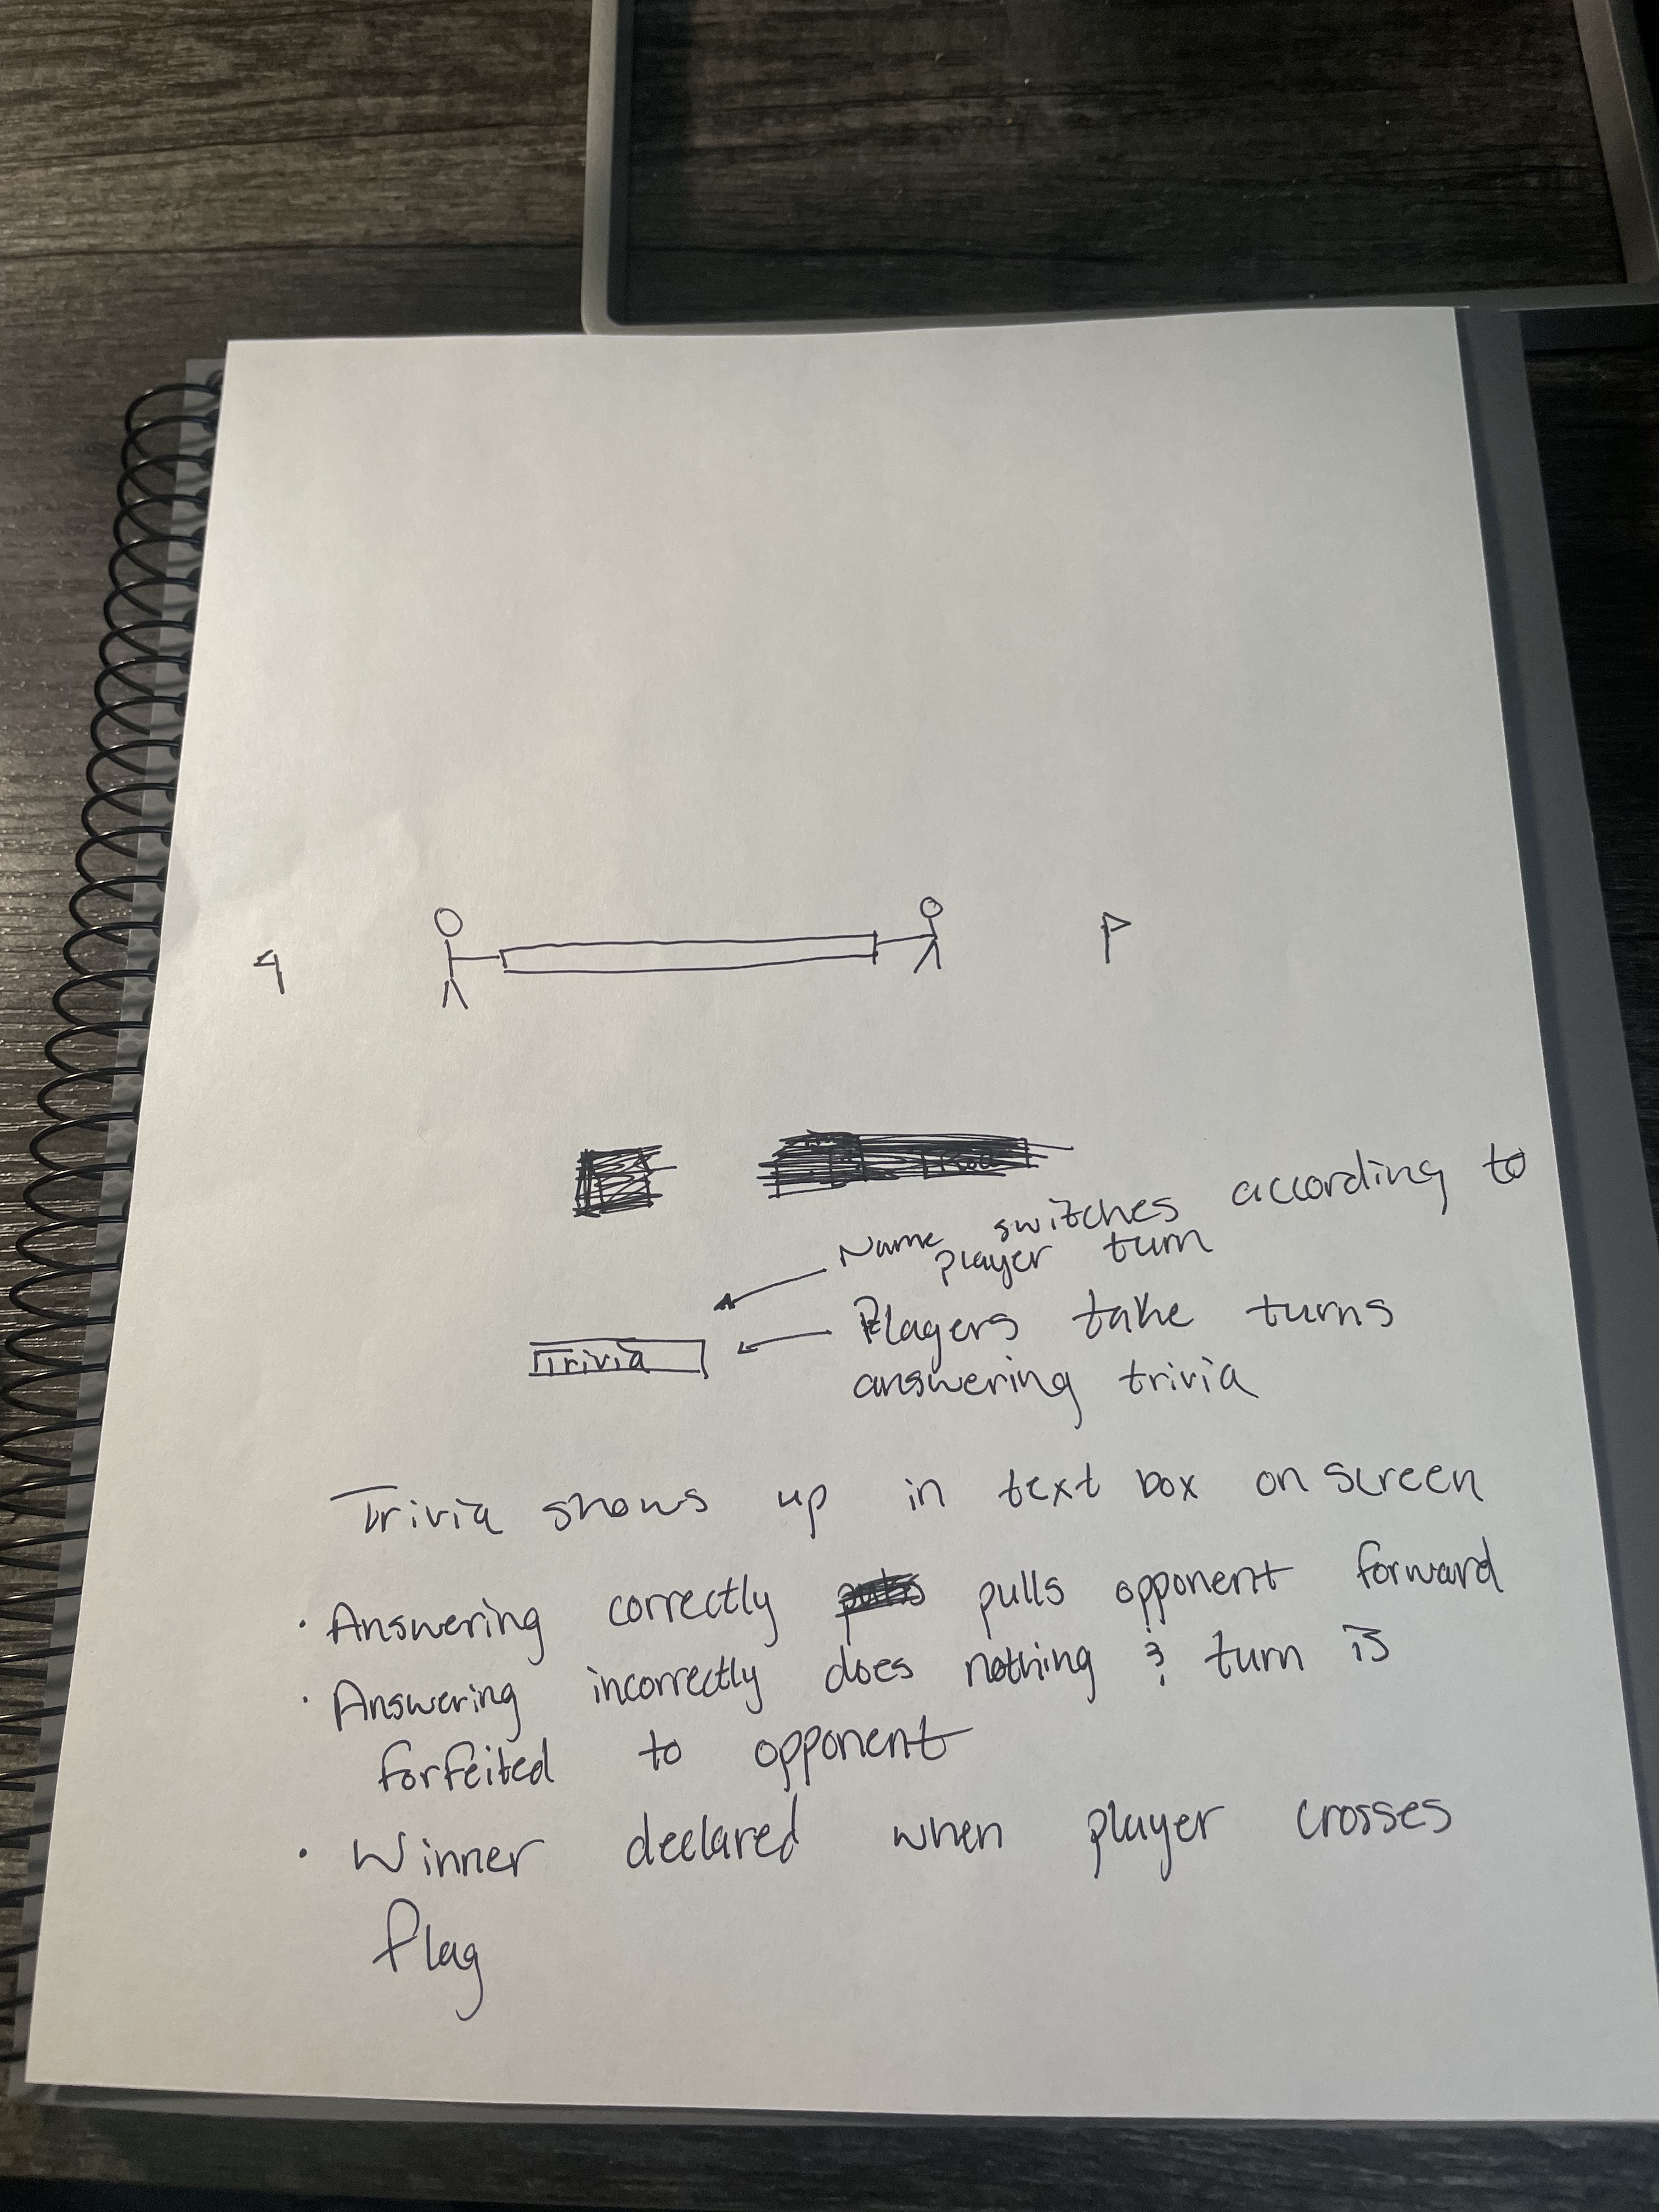 Name switches according to
player turn
Trivia
Players take turns
answering trivia
Trivia shows up in text box on screen
· Answering correctly pulls opponent forward
· Answering incorrectly does nothing & turn is
forfeited to opponent
· Winner declared when player crosses
flag